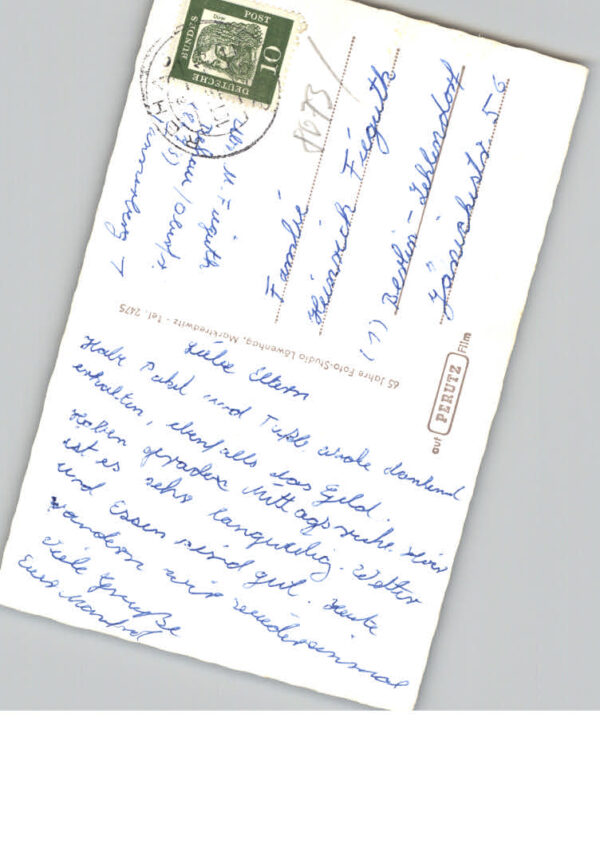 Liebe Eltern
Habe Paket und
erhalten, ebenfalls das Geld.
Haben gerade Mittagsruhe. Hier
ist es sehr langweilig. Wetter
und Essen sind gut. Heute
wandern wir wiedereinmal
Viele Grüße
Euer Manfred
DEUTSCHE BUNDESPOST
10
8073
Abs. M. Fieguth
Familie
Heinrich Fieguth
(1) Berlin-Zehlendorf
Jänickestr 56
65 Jahre Foto-Studio Löwenhag, Marktredwitz - Tel. 2475
auf PERUTZ Film